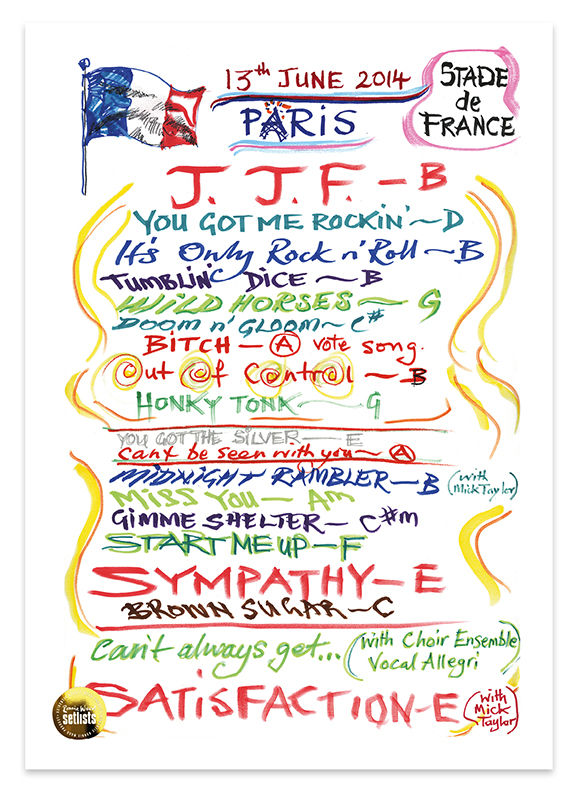 13th JUNE 2014
PARIS
STADE
de
FRANCE
J. J. F. – B
YOU GOT ME ROCKIN' ~ D
It's Only Rock n' Roll ~ B
TUMBLIN' DICE ~ B
WILD HORSES ~ G
DOOM n' GLOOM ~ C#
BITCH – A vote song.
Out Of Control – B
HONKY TONK – G
YOU GOT THE SILVER – E
Can't be seen with you ~ A
MIDNIGHT RAMBLER – B
(with
Mick Taylor)
MISS YOU – Am
GIMME SHELTER – C#m
START ME UP – F
SYMPATHY – E
BROWN SUGAR – C
can't always get...
(with Choir Ensemble
Vocal Allegri)
SATISFACTION – E
(with
Mick
Taylor)
Ronnie Wood
setlists